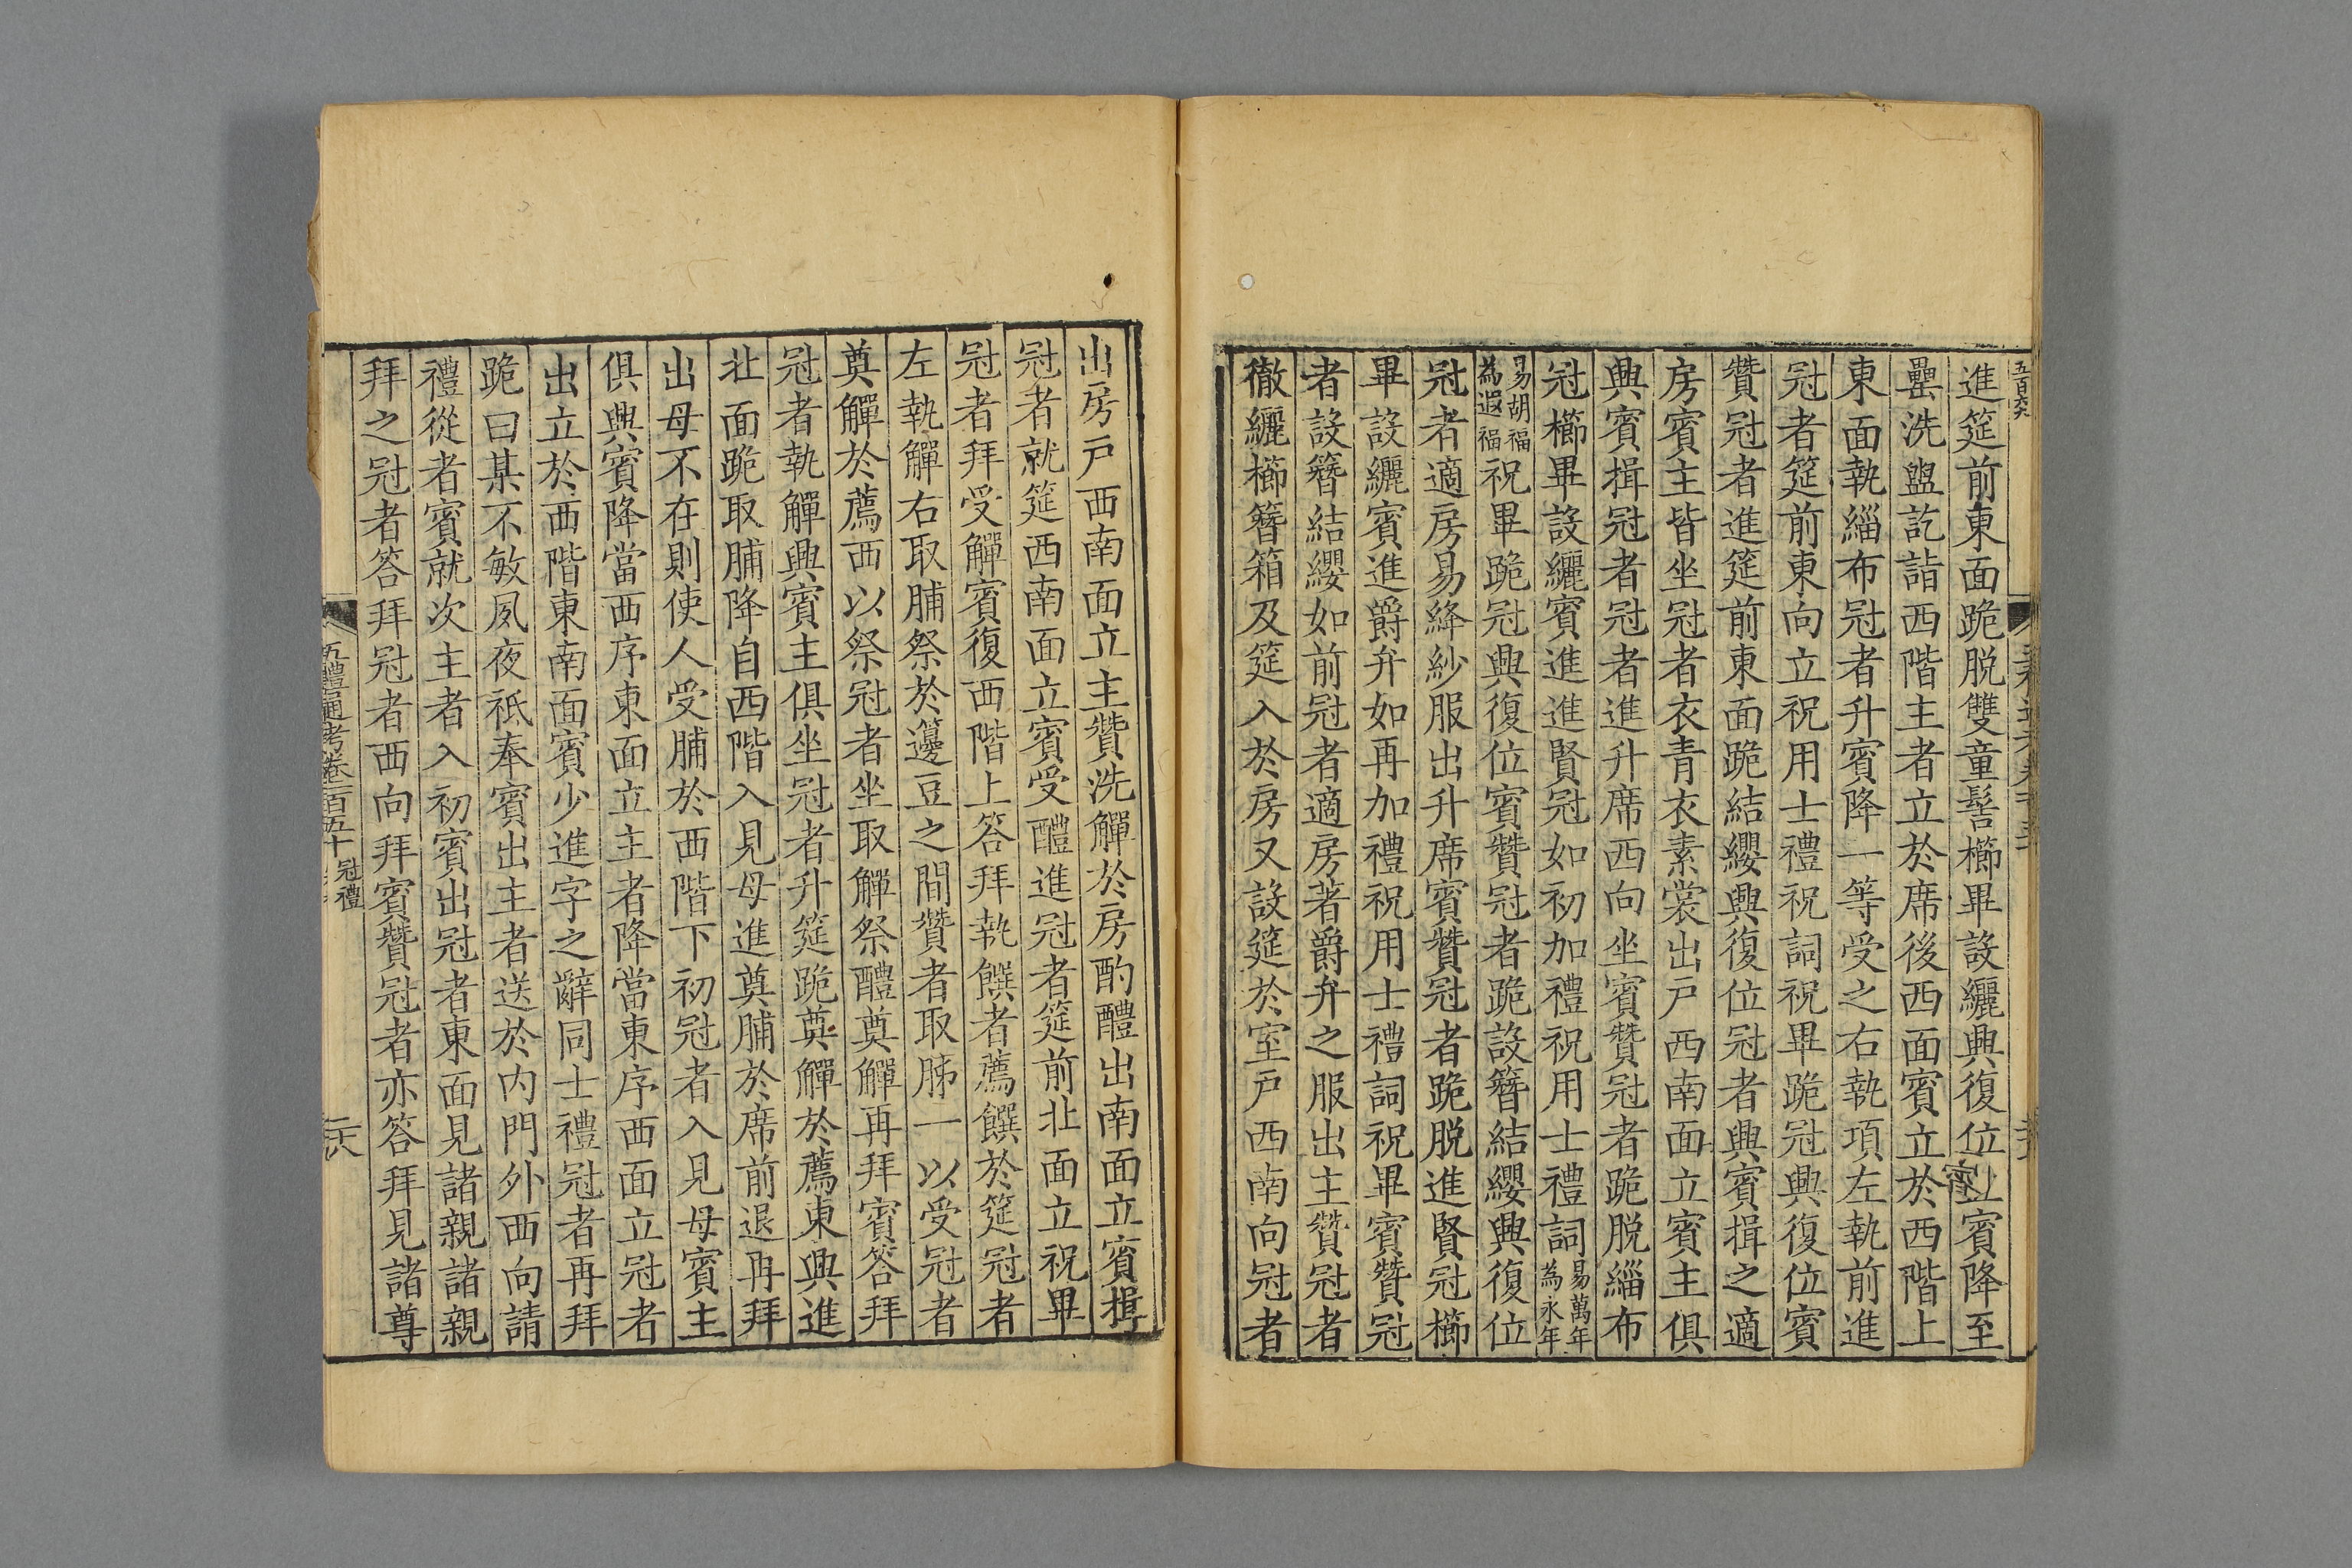 進筵前東面跪脱雙童髻櫛畢設纚興復位賓降至
罍洗盥訖詣西階主者立於席後西面賓立於西階上
東面執緇布冠者升賓降一等受之右執項左執前進
冠者筵前東向立祝用士禮祝詞祝畢跪冠興復位賓
贊冠者進筵前東面跪結纓興復位冠者興賓揖之適
房賓主皆坐冠者衣青衣素裳出戸西南面立賓主俱
興賓揖冠者冠者進升席西向坐賓贊冠者跪脱緇布
冠櫛畢設纚賓進進賢冠如初加禮祝用士禮詞易萬年為永年
易胡福為遐福祝畢跪冠興復位賓贊冠者跪設簪結纓興復位
冠者適房易絳紗服出升席賓贊冠者跪脱進賢冠櫛
畢設纚賓進爵弁如再加禮祝用士禮詞祝畢賓贊冠
者設簪結纓如前冠者適房著爵弁之服出主贊冠者
徹纚櫛簪箱及筵入於房又設筵於室戸西南向冠者
出房戸西南面立主贊洗觶於房酌醴出南面立賓揖
冠者就筵西南面立賓受醴進冠者筵前北面立祝畢
冠者拜受觶賓復西階上答拜執饌者薦饌於筵冠者
左執觶右取脯祭於籩豆之間贊者取胏一以受冠者
奠觶於薦西以祭冠者坐取觶祭醴奠觶再拜賓答拜
冠者執觶興賓主俱坐冠者升筵跪奠觶於薦東興進
北面跪取脯降自西階入見母進奠脯於席前退再拜
出母不在則使人受脯於西階下初冠者入見母賓主
俱興賓降當西序東面立主者降當東序西面立冠者
出立於西階東南面賓少進字之辭同士禮冠者再拜
跪曰某不敏夙夜祇奉賓出主者送於内門外西向請
禮從者賓就次主者入初賓出冠者東面見諸親諸親
拜之冠者答拜冠者西向拜賓贊冠者亦答拜見諸尊
五禮通考卷一百五十 冠禮 二六